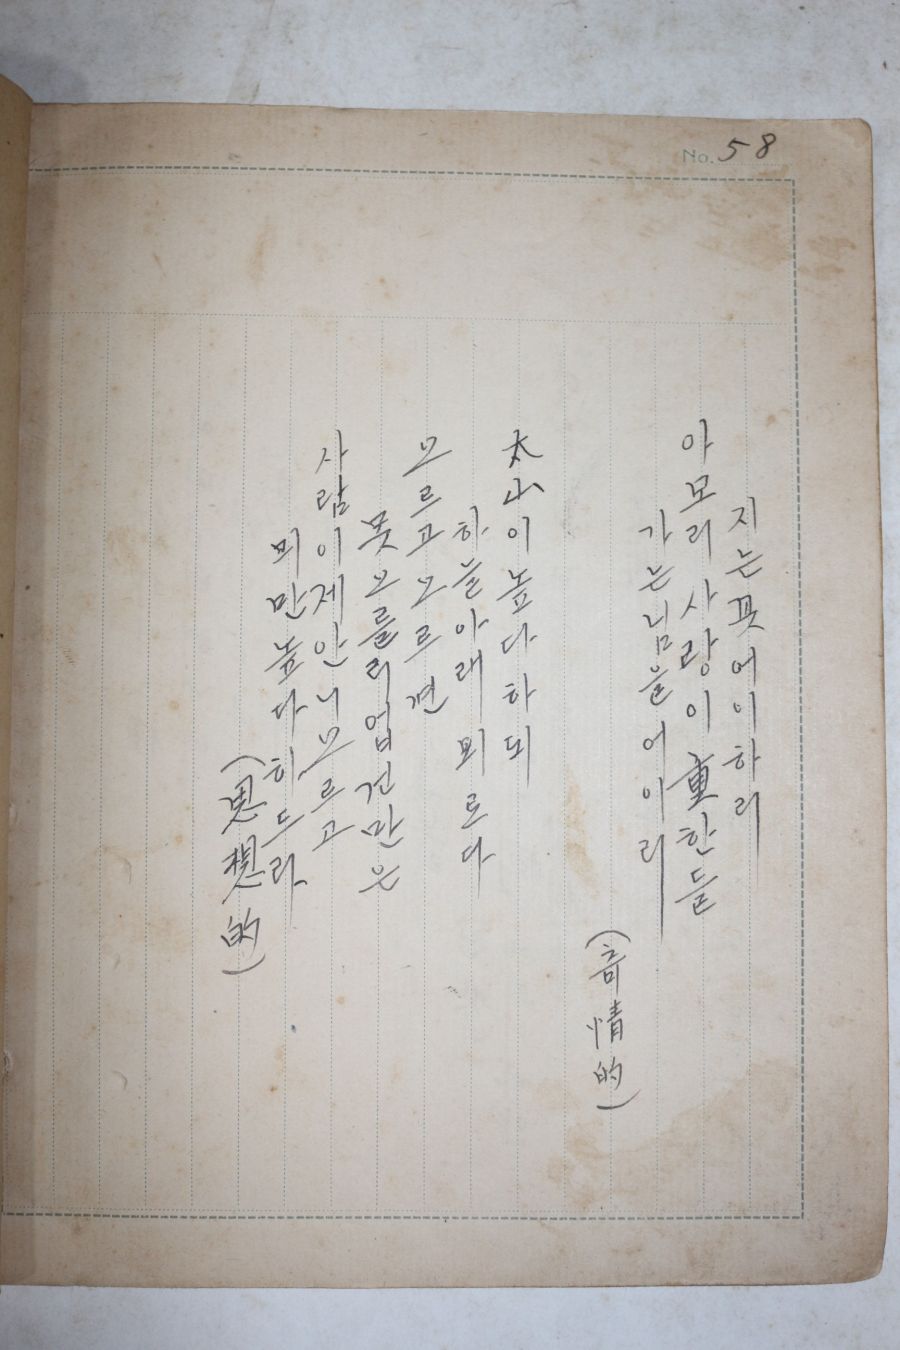 No. 58
지는꼿어이하리
아모리사랑이重한들
가는님을어이리
(奇情的)
太山이높다하되
하늘아래뫼로다
오르고오르면
못오를리업건만은
사람이제안니오르고
뫼만높다히드라
(思想的)